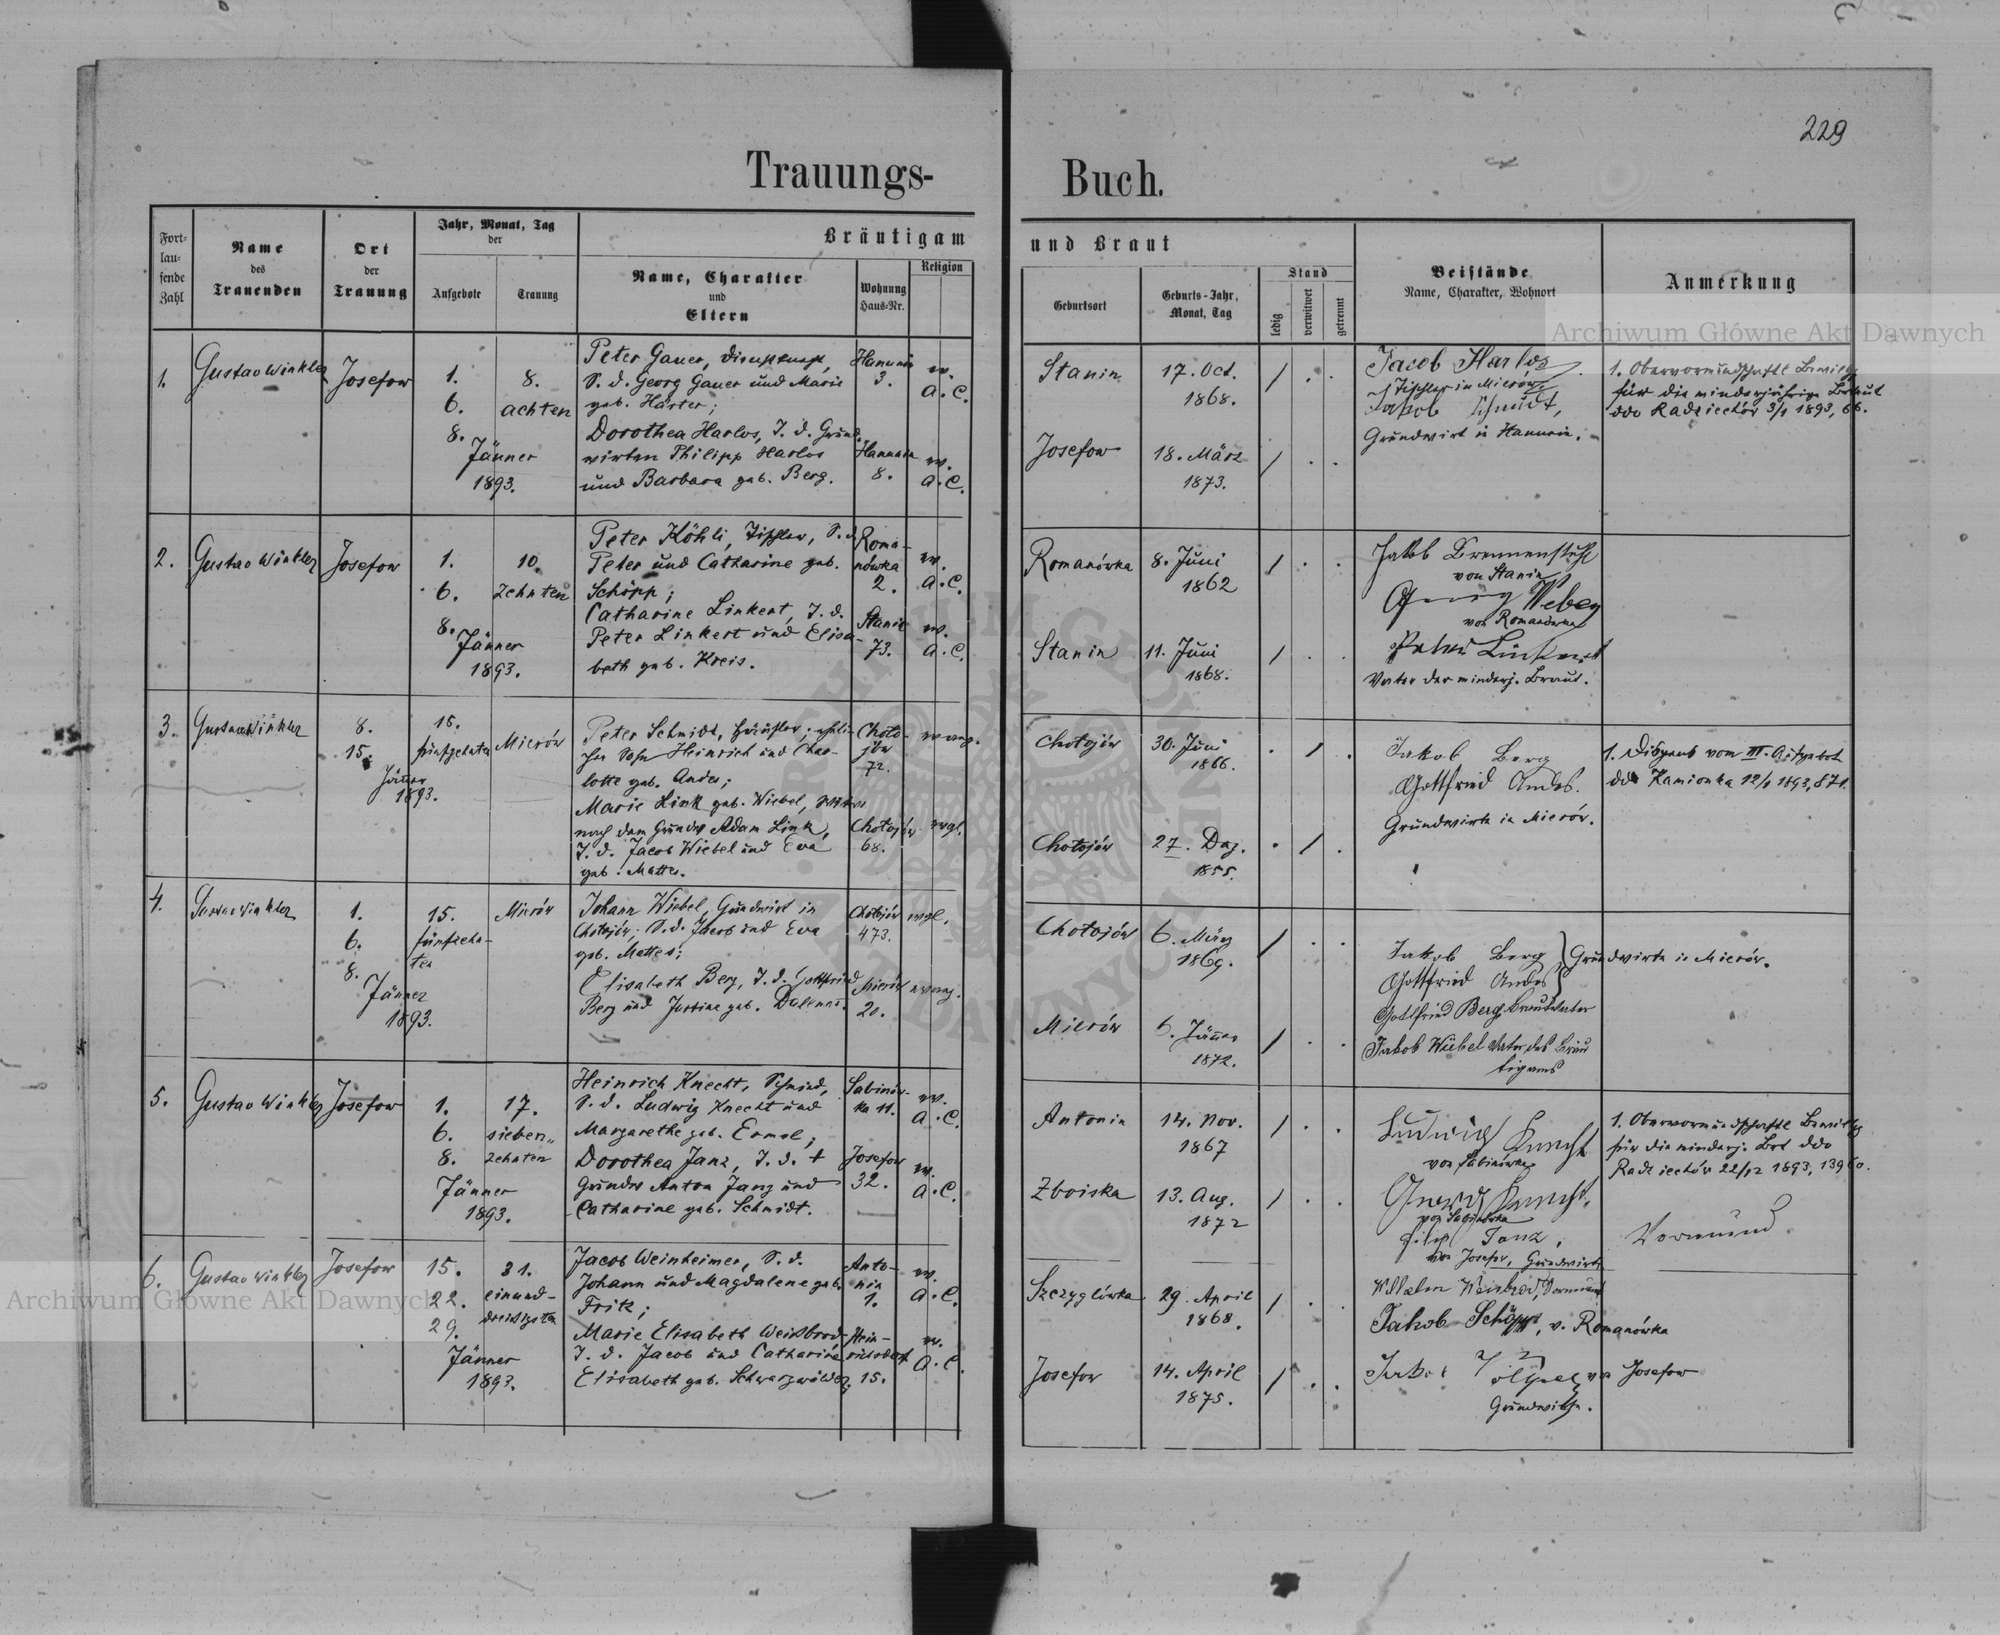 229
Trauungs-
Buch.
Fort-
lau-
fende
Zahl
Name
des
Trauenden
Ort
der
Trauung
Jahr, Monat, Tag
der
Aufgebote
Trauung
Bräutigam
Name, Charakter
und
Eltern
Wohnung
Haus-Nr.
Religion
und Braut
Geburtsort
Geburts-Jahr,
Monat, Tag
Stand
ledig
verwitwet
getrennt
Beistände
Name, Charakter, Wohnort
Anmerkung
Archiwum Główne Akt Dawnych
1. Gustav Winkler Josefow
1. 8.
6. achten
8.
Jänner
1893.
Peter Gauer, Dienstknecht,
S. d. Georg Gauer und Marie
geb. Harter;
Dorothea Harlos, T. d. Grund-
wirten Philipp Harlos
und Barbara geb. Berg.
Hanunin
3.
ev.
A. C.
Hanunin
8.
ev.
A. C.
Stanin 17. Oct.
1868.
Josefow 18. März
1873.
Jacob Harlos
Tischler in Mierów
Jakob Schmidt,
Grundwirt in Hanunin.
1. Obervormundschaftl. Bewillg.
für die minderjährige Braut
ddo Radziechów 3/1 1893, 66.
2. Gustav Winkler Josefow
1. 10.
6. zehnten
8.
Jänner
1893.
Peter Köhli, Tischler, S. d.
Peter und Catharine geb.
Schöpp;
Catharine Linkert, T. d.
Peter Linkert und Elisa-
beth geb. Kreis.
Roma-
nówka
2.
ev.
A. C.
Stanin
73.
ev.
A. C.
Romanówka 8. Juni
1862
Stanin 11. Juni
1868.
Jakob Brennenstuhl
von Stanin
Georg Weber
von Romanówka
Peter Linkert
Vater der minderj. Braut.
3. Gustav Winkler
8.
15.
Jänner
1893.
15.
fünfzehnten
Mierów
Peter Schmidt, Häusler, eheli-
cher Sohn Heinrich und Char-
lotte geb. Andes;
Marie Link geb. Wiebel, Witwe
nach dem Grundw Adam Link,
T. d. Jacob Wiebel und Eva
geb. Mattes.
Choto-
jów
72.
evang.
Chotojów
68.
evgl.
Chotojów 30. Juni
1866.
Chotojów 27. Dez.
1855.
Jakob Berg
Gottfried Andes.
Grundwirte in Mierów.
1. Dispens vom III. Aufgebot
ddo Kamionka 12/1 1893, 871.
4. Gustav Winkler
1.
6.
8.
Jänner
1893.
15.
fünfzehn-
ten
Mierów
Johann Wiebel, Grundwirt in
Chotojów, S. d. Jacob und Eva
geb. Mattes;
Elisabeth Berg, T. d. Gottfried
Berg und Justine geb.
Chotojów
473.
evgl.
Mierów
20.
evang.
Chotojów 6. März
1869.
Mierów 6. Jänner
1872.
Jakob Berg
Gottfried Andes
Grundwirte in Mierów.
Gottfried Berg Brautvater
Jakob Wiebel Vater des Bräu
tigams
5. Gustav Winkler Josefow
1. 17.
6. sieben-
8. zehnten
Jänner
1893.
Heinrich Knecht, Schmied,
S. d. Ludwig Knecht und
Margarethe geb. Ermel;
Dorothea Janz, T. d. +
Grundw Anton Janz und
Catharine geb. Schmidt.
Sabinów-
ka 11.
ev.
A. C.
Josefow
32.
ev.
A. C.
Antonin 14. Nov.
1867
Zboiska 13. Aug.
1872
Ludwig Knecht
von Sabinówka
Georg Knecht,
von Sabinówka
Filip Janz,
von Josefow, Grundwirte
1. Obervormundschaftl. Bewillg
für die minderj. Brt ddo
Radziechów 22/12 1893,
Vormund.
6. Gustav Winkler Josefow
15. 31.
22. einund-
29. dreißigsten
Jänner
1893.
Jacob Weinheimer, S. d.
Johann und Magdalene geb.
Fritz;
Marie Elisabeth Weißbrod
T. d. Jacob und Catharine
Elisabeth geb. Schwarzwälder;
Anto-
nin
1.
ev.
A. C.
Hein-
richsdorf
15.
ev.
A. C.
Szczyglówka 29. April
1868.
Josefow 14. April
1875.
Wilhelm Weisbrod, Vormund
Jakob Schöpp, v. Romanówka
Jakob von Josefow
Grundwirthe.
Archiwum Główne Akt Dawnych